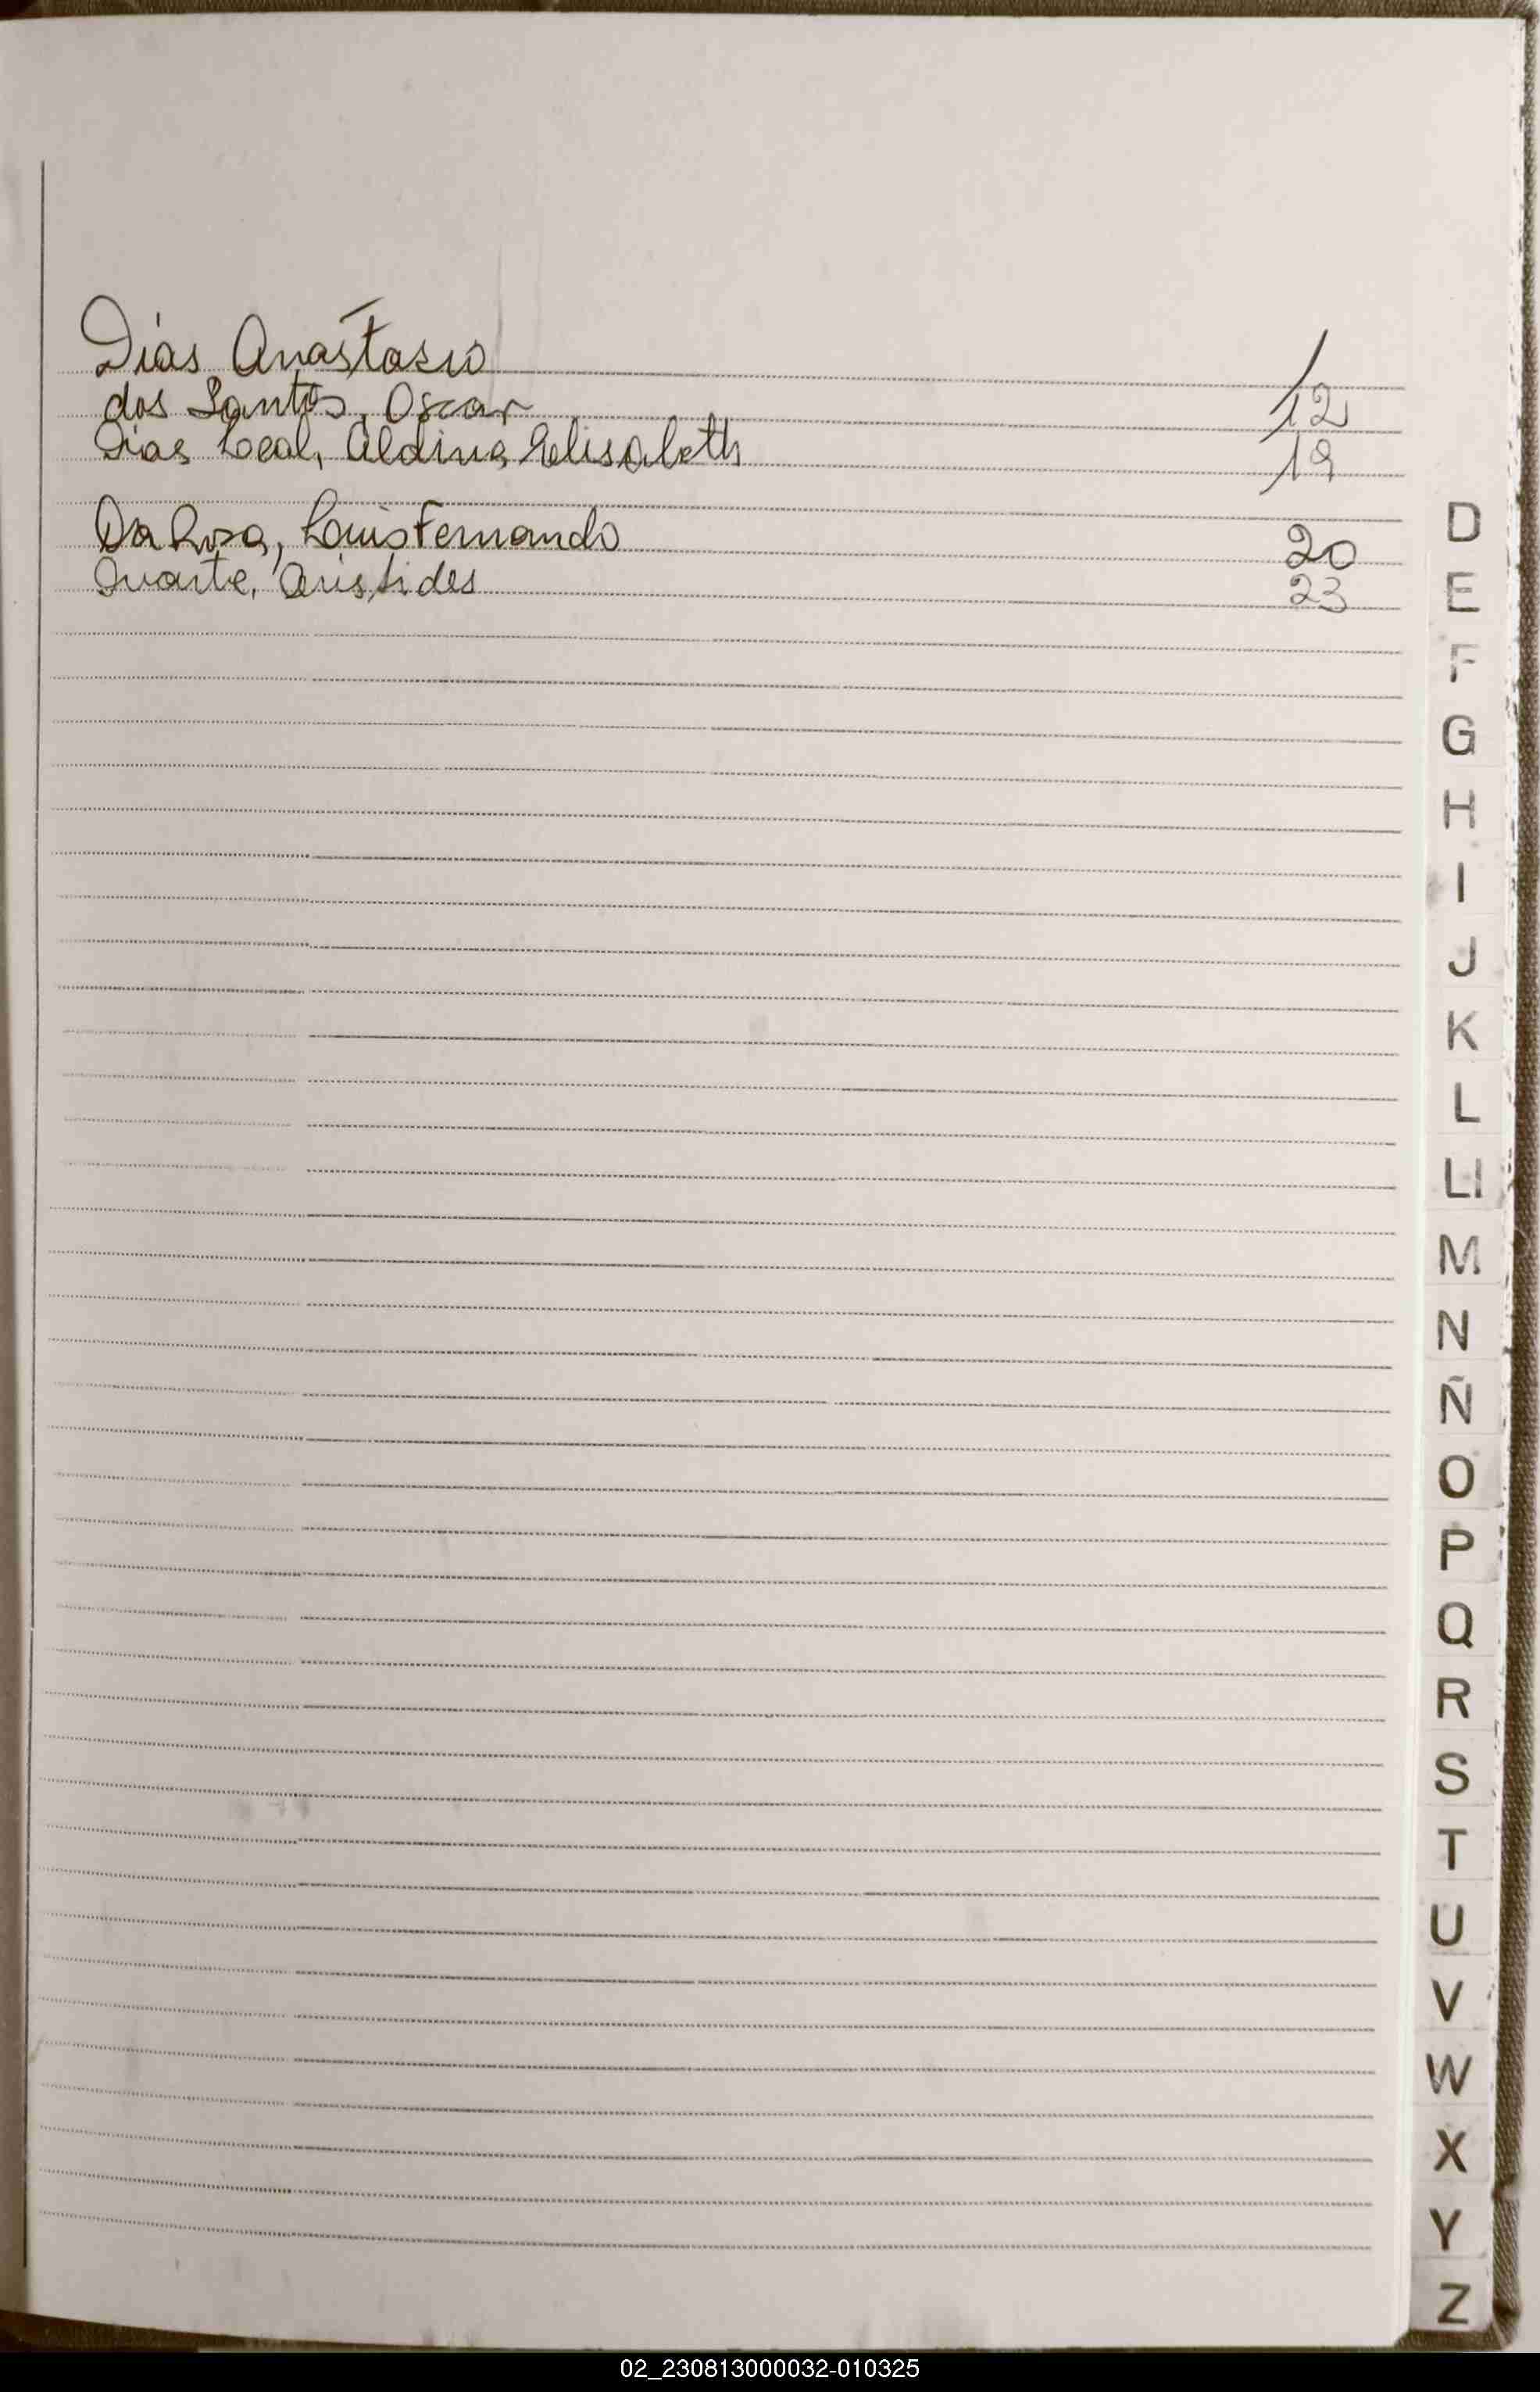 Dias Anastasio 1
dos Santos, Oscar 12
Dias Leal, Aldina Elisabeth 19
Da Rosa, Luis Fernando 20
Duarte, Aristides 23
D
E
F
G
H
I
J
K
L
Ll
M
N
Ñ
O
P
Q
R
S
T
U
V
W
X
Y
Z
02_230813000032-010325